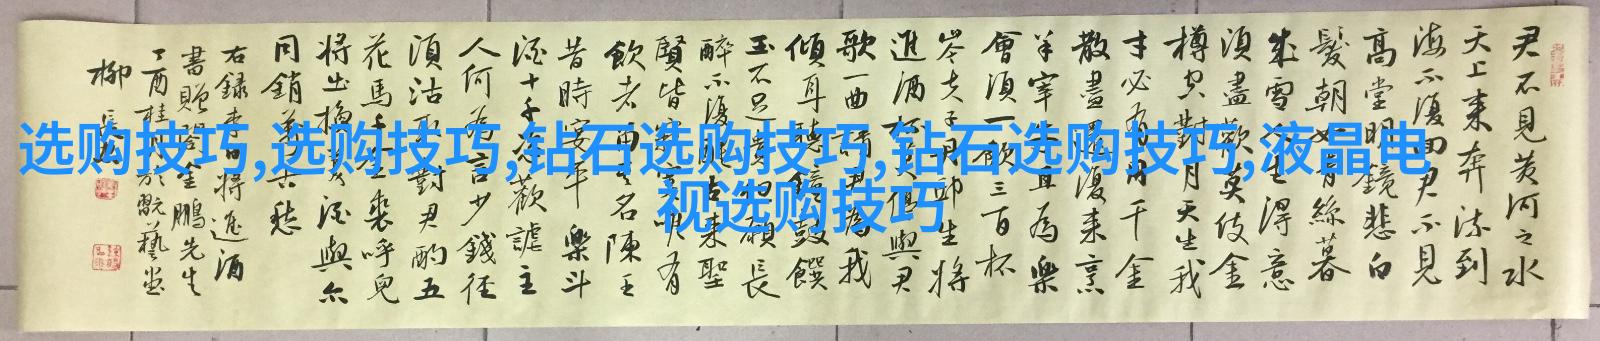 君不見黃河之水
天上來奔流到
海不復回君不見
高堂明鏡悲白
髮朝如青絲暮
成雪人生得意
須盡歡莫使金
樽空對月天生我
才必有用千金
散盡還復來烹
羊宰牛且為樂
會須一飲三百杯
岑夫子丹邱生將
進酒杯莫停與君
歌一曲請君為我
傾耳聽鐘鼓饌
玉不足貴但願長
醉不復醒古來聖
賢皆寂寞唯有
飲者留其名陳王
昔時宴平樂斗
酒十千恣歡謔主
人何為言少錢徑
須沽取對君酌五
花馬千金裘呼兒
將出換美酒與尔
同銷萬古愁
右錄李白將進酒
書贈
金鵬先生
丁酉桂月於
藝堂
柳
选购技巧,选购技巧,钻石选购技巧,钻石选购技巧,液晶电
视选购技巧